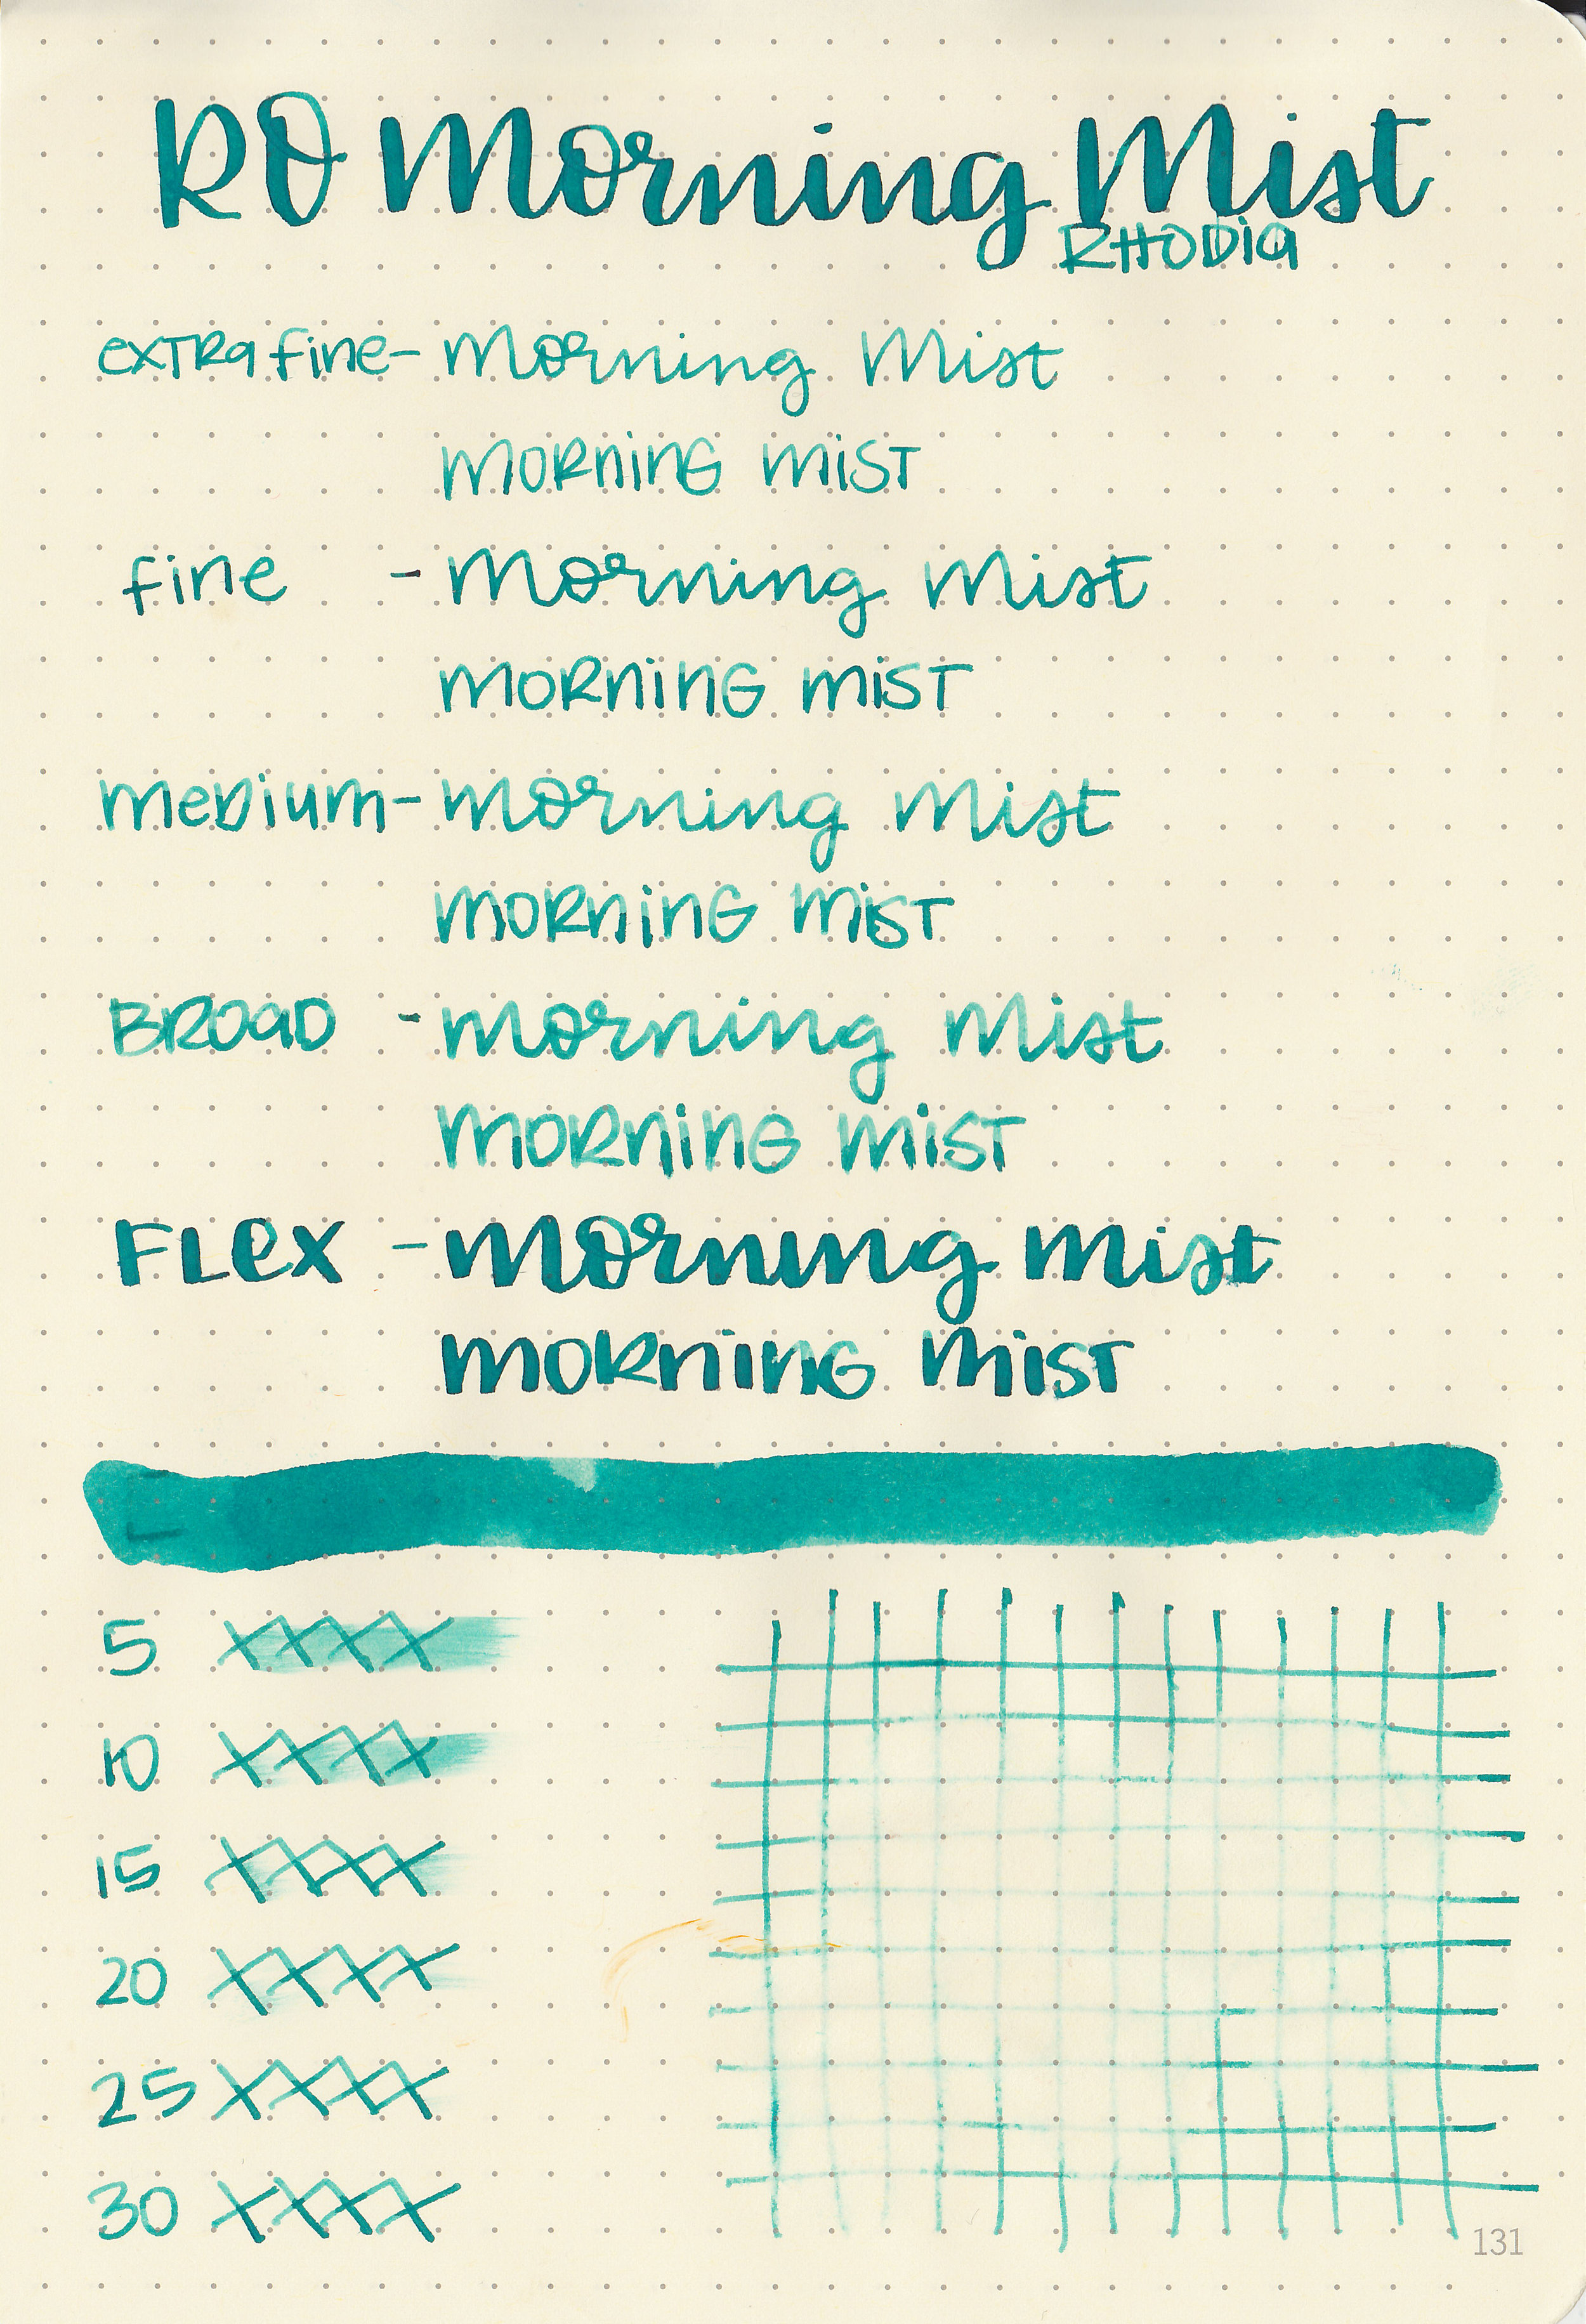 RO Morning Mist
RHODIA
extra fine - Morning Mist
MORNING MIST
fine - Morning Mist
MORNING MIST
medium - Morning Mist
MORNING MIST
BROAD - Morning Mist
MORNING MIST
FLEX - Morning Mist
MORNING MIST
5 XXXX
10 XXXX
15 XXXX
20 XXXX
25 XXXX
30 XXXX
131